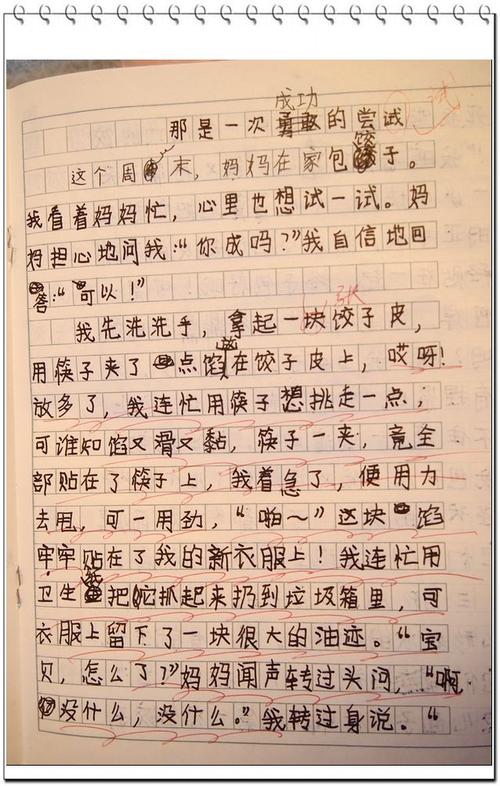 试
成功
那是一次的尝试
饺
这个周末，妈妈在家包子。
我看着妈妈忙，心里也想试一试。妈
妈担心地问我：“你成吗？”我自信地回
答：“可以！”
张
我先洗洗手，拿起一块饺子皮，
放
用筷子夹了一点馅在饺子皮上，哎呀！
放多了，我连忙用筷子想挑走一点，
可谁知馅又滑又黏，筷子一夹，竟全
部贴在了筷子上，我着急了，便用力
去甩，可一用劲，“啪～”这块馅
牢牢贴在了我的新衣服上！我连忙用
卫生把它抓起来扔到垃圾箱里，可
衣服上留下了一块很大的油迹。“宝
贝，怎么了？”妈妈闻声转过头问，“啊
没什么，没什么。”我转过身说。“